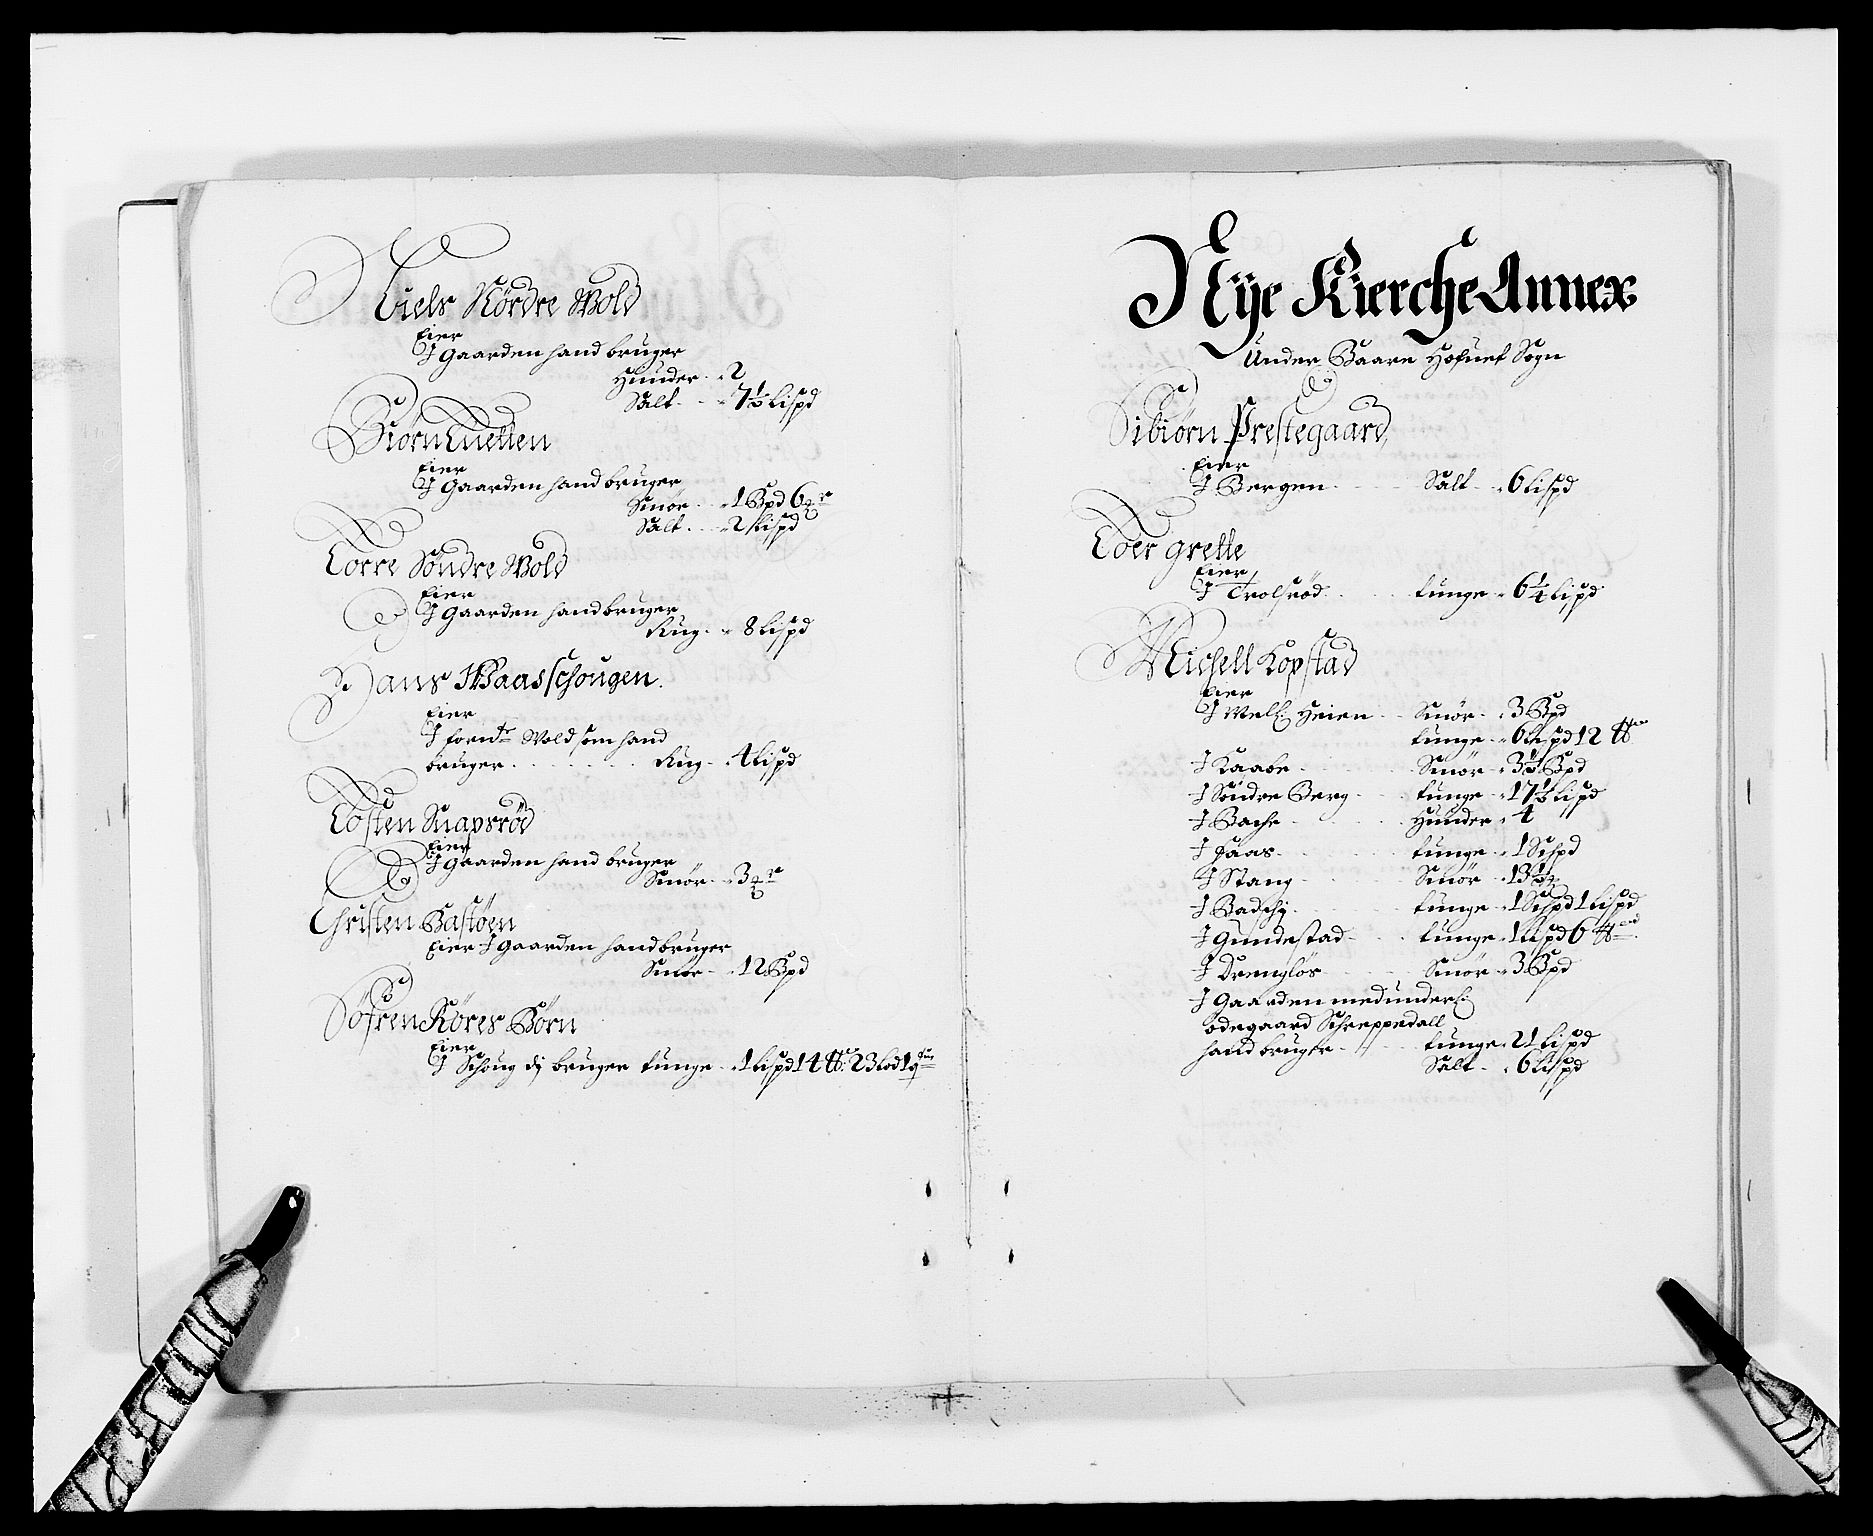 Niels Nørdre Wold
Eier
J Gaarden hand bruger
Hunder - 2
Salt - 7½ Lispd
Biørn Luetten
Eier
J Gaarden hand bruger
Smør - 1 Bpd 6
Salt - 2 Lispd
Torre Søndre Wold
Eier
J Gaarden hand bruger
Rug - 8 Lispd
Hans Waasschougen.
Eier
J fornde Wold som hand
bruger Rug - 4 Lispd
Tosten Snapsrød
Eier
J Gaarden hand bruger
Smør - 3
Christen Bastøen
Eier J Gaarden hand bruger
Smør - 12 Bpd
Søfren Røres Børn
Eier
J Schoug dj bruger tunge - 1 Lispd 14 ℔: 23 Lod 1 q
Nÿe Kierche Annex
Under Baare Hofuet Sogn
Sibiørn Prestegaard
Eier
J Bergen Salt - 6 Lispd
Toer grette
Eier
J Trolsrød tunge - 6¼ Lispd
Michell Kopstad
Eier
J Mell: Heien Smør - 3 Bpd
tunge - 6 Lispd 12 ℔
J Raabe Smør - 3½ Bpd
J Søndre Berg tunge - 17½ Lispd
J Bache Hunder - 4
J Faas tunge - 1 Schpd
J Stang Smør - 13½
J Badchj tunge - 1 Schpd 1 Lispd
J Gundestad tunge - 1 Lispd 6 ℔
J Drenglös Smør - 3 Bpd
J Gaarden med underl:
ødegaard Schreppedall
hand bruger - tunge - 21 Lispd
Salt - 6 Lispd